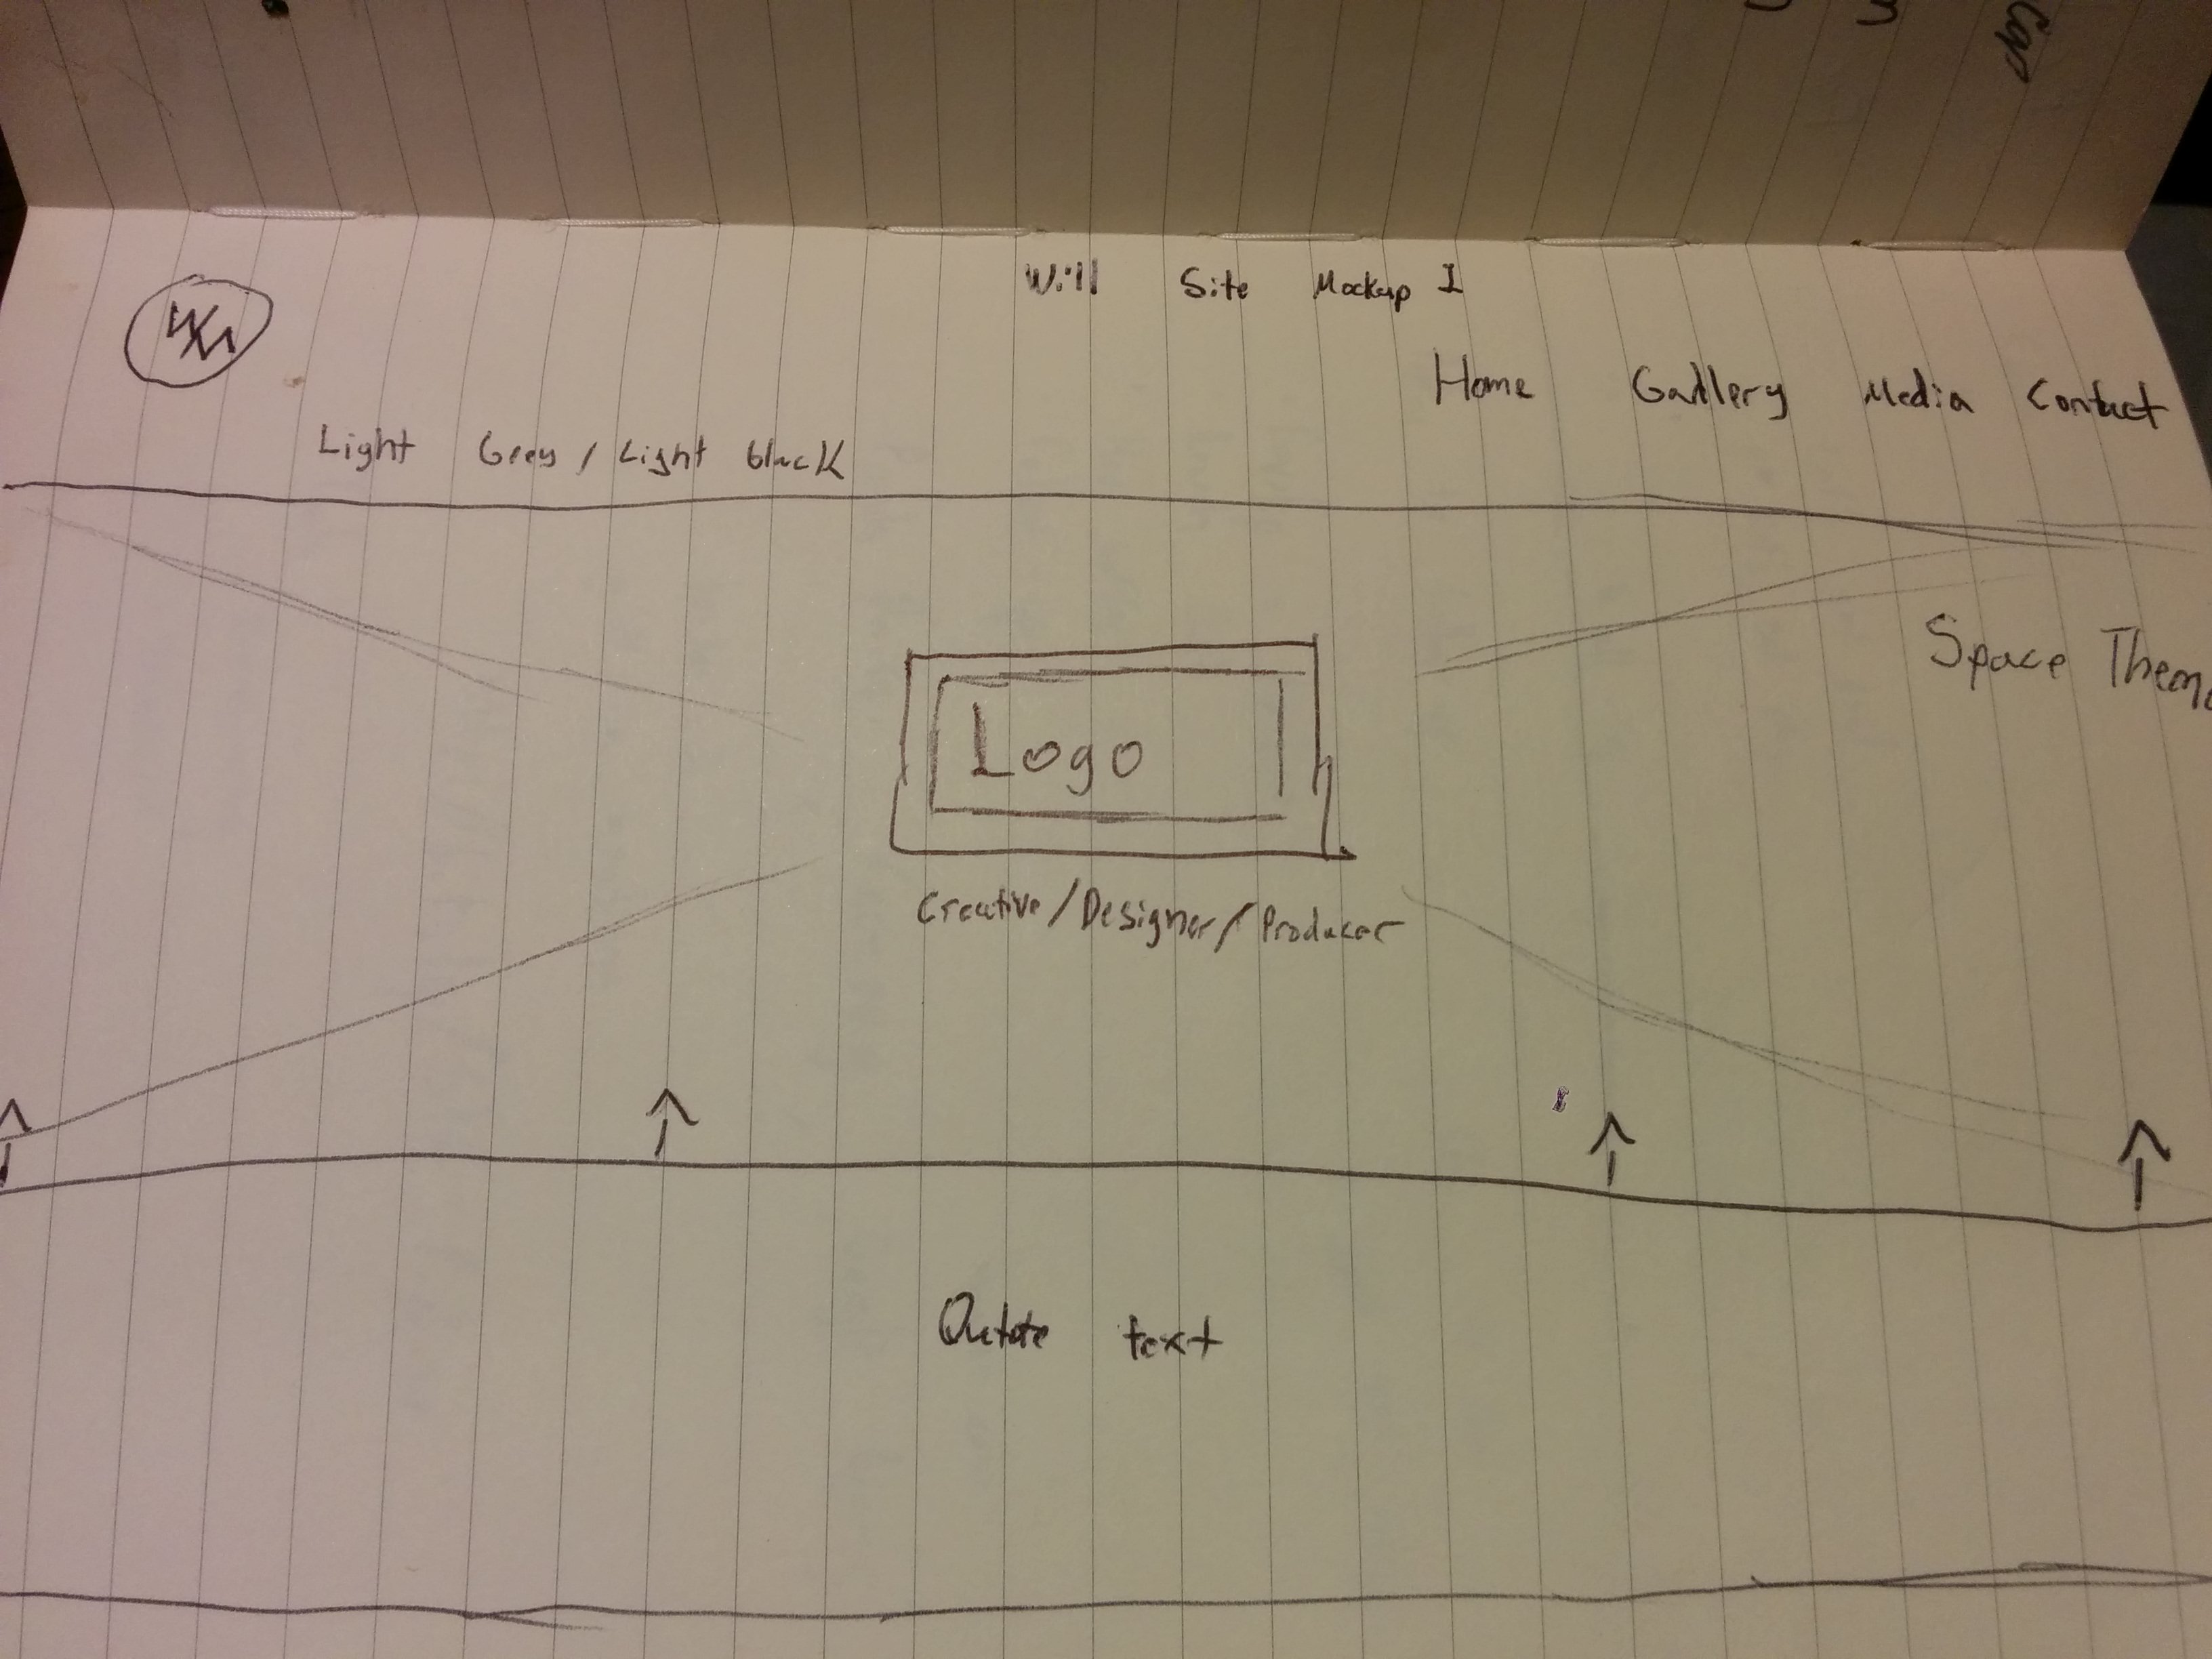 Cap
Will Site Mockup I
Home Gallery Media Contact
Light Grey / Light black
Space Theme
Logo
Creative/Designer/Producer
Qutote text